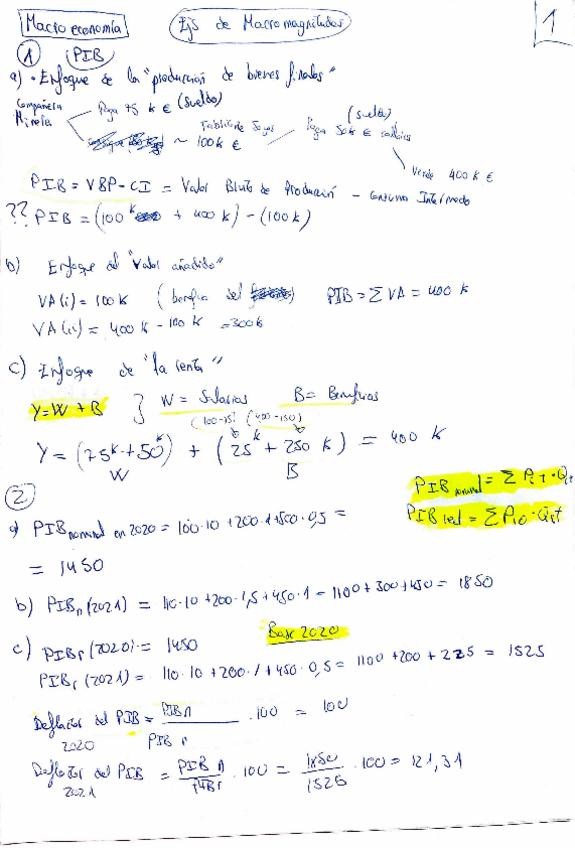 Macroeconomía
Ejs de Macromagnitudes
1
① PIB
a) • Enfoque de la "producción de bienes finales"
Compañera Minela
Paga 75 k € (sueldo)
~ 100k €
Paga 50k €
(sueldo)
Vende 400 k €
PIB = VBP - CI = Valor Bruto de Producción - Consumo Intermedio
?? PIB = (100 k + 400 k) - (100k)
b) Enfoque del "valor añadido"
VA(i) = 100 k PIB = Σ VA = 400 k
VA(ii) = 400 k - 100 k = 300k
c) Enfoque de "la renta"
Y = W + B } W = Salarios B = Beneficios
(100-75) (400-150)
Y = (75k + 50k) + (25k + 250 k) = 400 k
W B
②
PIB nominal = Σ Pit · Qit
PIB real = Σ Pi0 · Qit
a) PIB nominal en 2020 = 100·10 + 200·1 + 500·0,5 =
= 1450
b) PIBn (2021) = 110·10 + 200·1,5 + 450·1 = 1100 + 300 + 450 = 1850
Base 2020
c) PIBr (2020) = 1450
PIBr (2021) = 110·10 + 200·1 + 450·0,5 = 1100 + 200 + 225 = 1525
Deflactor del PIB 2020 = PIB n / PIB r · 100 = 100
Deflactor del PIB 2021 = PIB n / PIB r · 100 = 1850 / 1525 · 100 = 121,31